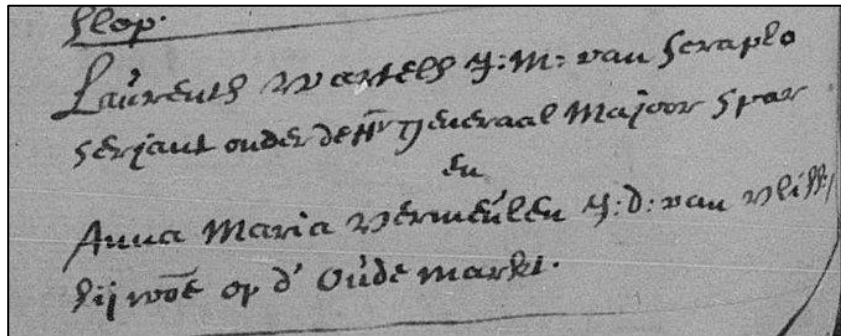 slop.
Laurents Wartels J:M: van Seraplo
serjant onder de Hr Generaal Majoor Spar
en
Anna Maria Vermeulen J:d: van Vliss:
hij woē op d' Oude markt.